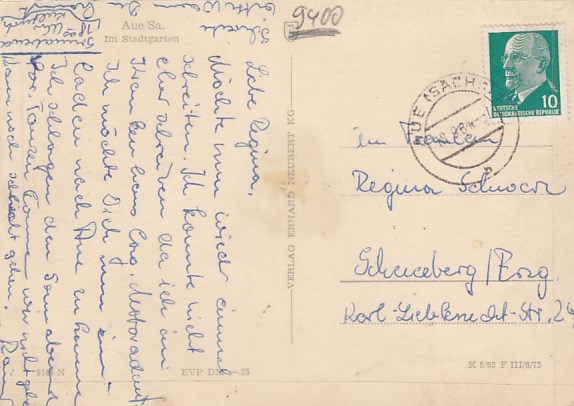 9400
Aue/Sa.
Im Stadtgarten
Liebe Regina,
Möchte nun wieder einmal
schreiben. Ich konnte nicht
eher schreiben da ich im
Krankenhaus lag. Motorradunf.
Ich möchte Dich nun ein-
laden nach Aue zu kommen
Ich schlage den Sonnabend
vor. Tanzen können wir nicht gehen
kann noch schlecht gehen.
Sonnabend
VERLAG ERHARD NEUBERT KG
9140 N
EVP DM -.25
AUE (SACHS)
DEUTSCHE
DEMOKRATISCHE REPUBLIK
10
Fräulein
Regina
Schneeberg/Erzg.
Karl-Liebknecht-Str. 24
K 5/63 F III/6/75